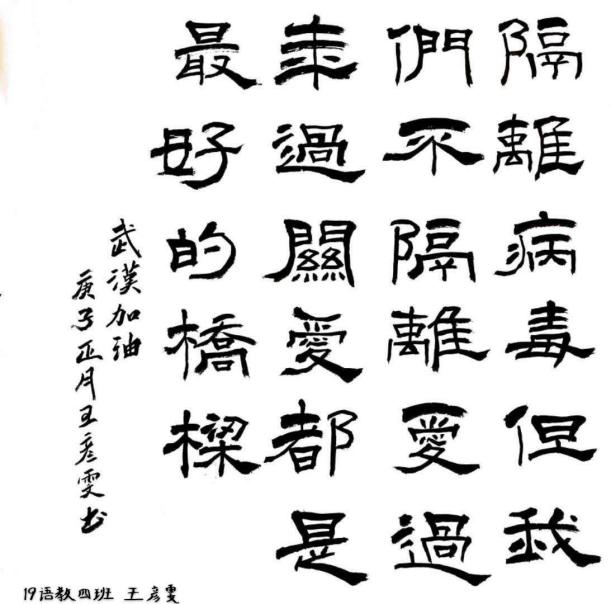 隔離病毒但我
們不隔離愛過
来過關愛都是
最好的橋樑
武漢加油
庚子正月王彦雯书
19语教四班 王彦雯